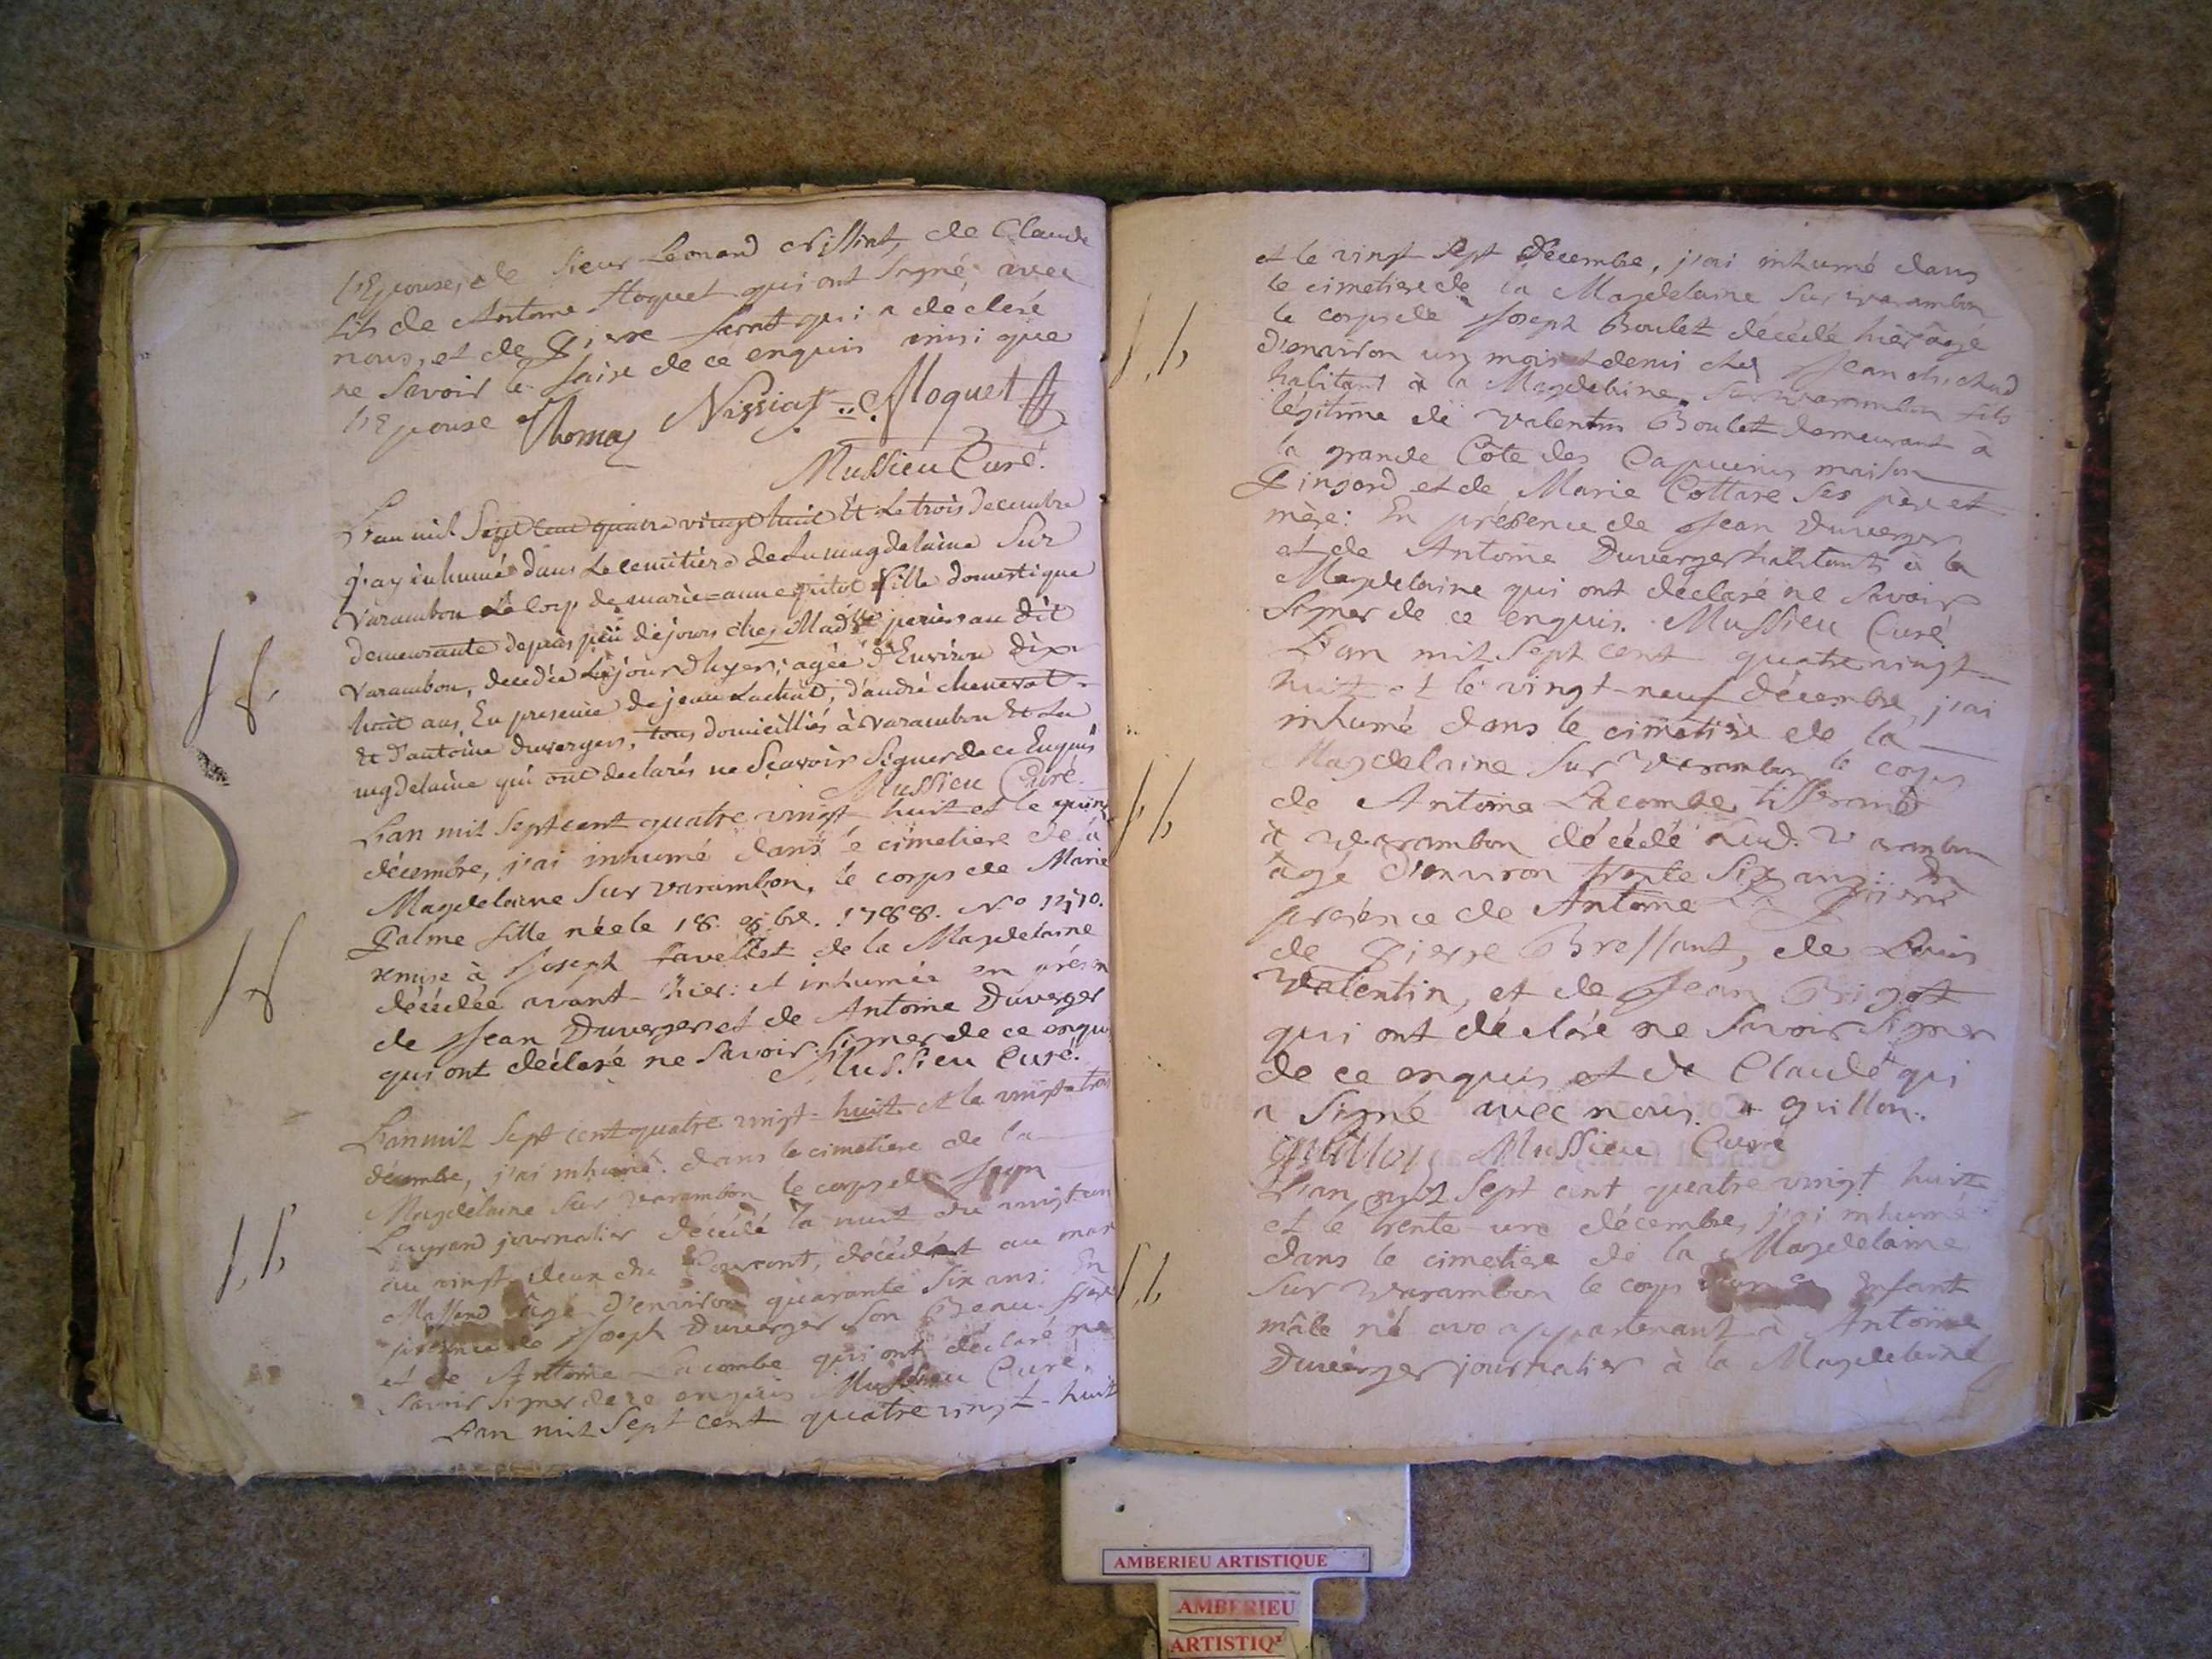 l'Epouse, de Sieur Leonard Nissiat, de Claude
fils de Antoine Floquet qui ont Signé avec
nous, et de Pierre qui a déclaré
ne Savoir le faire de ce enquis ainsi que
l'Epouse Thomas Nissiat Floquet
Mussieu Curé.
L'an mil Sept cent quatre vingt huit Et Le trois Decembre
j'ay inhumé dans Le cemitière de La magdelaine Sur
Varambon Le Corp de marie=anne fille domestique
demeurante depuis peü de jours chez Mad.lle perier au dit
Varambon, decedée Le jour d'hyer; agée d'Environ dix
huit ans, En presence de jean Lachad, d'andré chenevat
Et d'antoine duverger, tous domicilliés à varambon Et La
mgdelaine qui ont declarés ne Sçavoir Signer de ce Enquis
Mussieu Curé.
L'an mil Sept cent quatre vingt huit et le
décembre, j'ai inhumé dans le cimetiere de la
Magdelaine Sur varambon, le corps de Marie
Palme fille née le 18. 8.bre. 1788. No
remise à Joseph Favellet de la Magdelaine
décédée avant-hier: et inhumée en présen
de Jean Duverger et de Antoine Duverger
qui ont déclaré ne Savoir Signer de ce enqu
Mussieu Curé.
L'an mil Sept cent quatre vingt-huit et le vingt-trois
décembre, j'ai inhumé dans le cimetiere de la
Magdelaine Sur varambon le corps de Jean
journalier décédé la nuit du vingt un
au vingt deux du Courant, décédé au mas
âgé d'environ quarante Six ans: En
présence de Joseph Duverger Son Beau-frère
et de Antoine Lacombe qui ont déclaré ne
Savoir Signer de ce enquis Mussieu Curé.
L'an mil Sept cent quatre vingt-huit
et le vingt Sept décembre, j'ai inhumé dans
le cimetiere de la Magdelaine Sur varambon
le corps de Joseph Boulet décédé hièr âgé
d'environ un mois et demi chez Jean
habitant à la Magdelaine Sur varambon fils
légitime de Valentin Boulet demeurant à
la grande Côte des Capucins maison
et de Marie Cottare Ses père et
mère: En présence de Jean Duverger
et de Antoine Duverger habitants à la
Magdelaine qui ont déclaré ne Savoir
Signer de ce enquis. Mussieu Curé
L'an mil Sept cent quatre vingt
huit et le vingt-neuf décembre, j'ai
inhumé dans le cimetière de la
Magdelaine Sur Varambon le corps
de Antoine Lacombe tisserand
à varambon décédé aud. Varambon
âgé d'environ trente Six ans: En
présence de Antoine
de Pierre Bressant, de Louis
Valentin, et de Jean
qui ont déclaré ne Savoir Signer
de ce enquis et de Claude + qui
a Signé avec nous. + guillon.
guillon Mussieu Curé
L'an mil Sept cent quatre vingt huit
et le trente-un décembre, j'ai inhumé
dans le cimetiere de la Magdelaine
Sur varambon le corps d'un Enfant
mâle né appartenant à Antoine
Duverger journalier à la Magdelaine
AMBERIEU ARTISTIQUE
AMBERIEU
ARTISTIQ